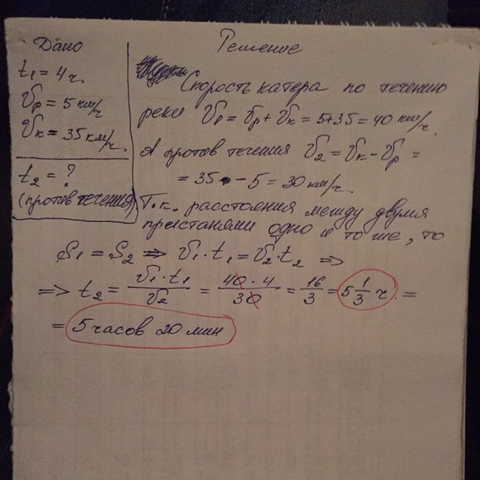 Дано
t₁ = 4 ч.
Vр = 5 км/ч
Vк = 35 км/ч.
t₂ = ?
(против течения)
Решение
Скорость катера по течению
реки V₁ = Vр + Vк = 5+35 = 40 км/ч.
А против течения V₂ = Vк - Vр =
= 35 - 5 = 30 км/ч.
Т.к. расстояния между двумя
пристанями одно и то же, то
S₁ = S₂ ⇒ V₁·t₁ = V₂·t₂ ⇒
⇒ t₂ = V₁·t₁/V₂ = 40·4/30 = 16/3 = 5 1/3 ч. =
= 5 часов 20 мин